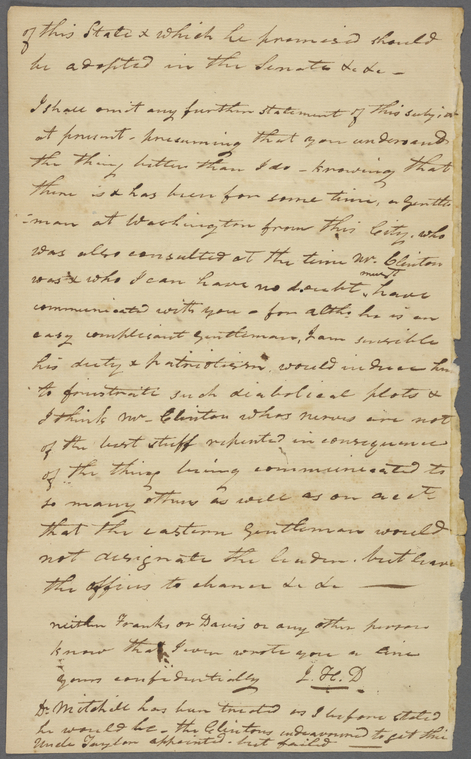 of this State & which he promised should
be adopted in the Senate &c &c -
I shall omit any further statement of this subject
at present - presuming that you understand
the thing better than I do - knowing that
there is & has been for some time, a gentle-
-man at Washington from this City, who
was also consulted at the time Mr. Clinton
was & who I can have no doubt, must have
communicated with you - for altho he is an
easy complisant gentleman, I am sensible
his duty & patriotism, would induce him
to frustrate such diabolical plots &
I think Mr Clinton whos nerves are not
of the best stuff repented in consequence
of the thing being communicated to
so many others as well as on acct
that the eastern gentleman would
not designate the leader. but leave
the offices to chance &c &c
neither Franks or Davis or any other person
know that I ever wrote you a line
yours confidentially J. H. D
Dr. Mitchill has been treated as I before stated
he would be - the Clintons indeavoured to get this
Uncle Taylor appointed - but failed